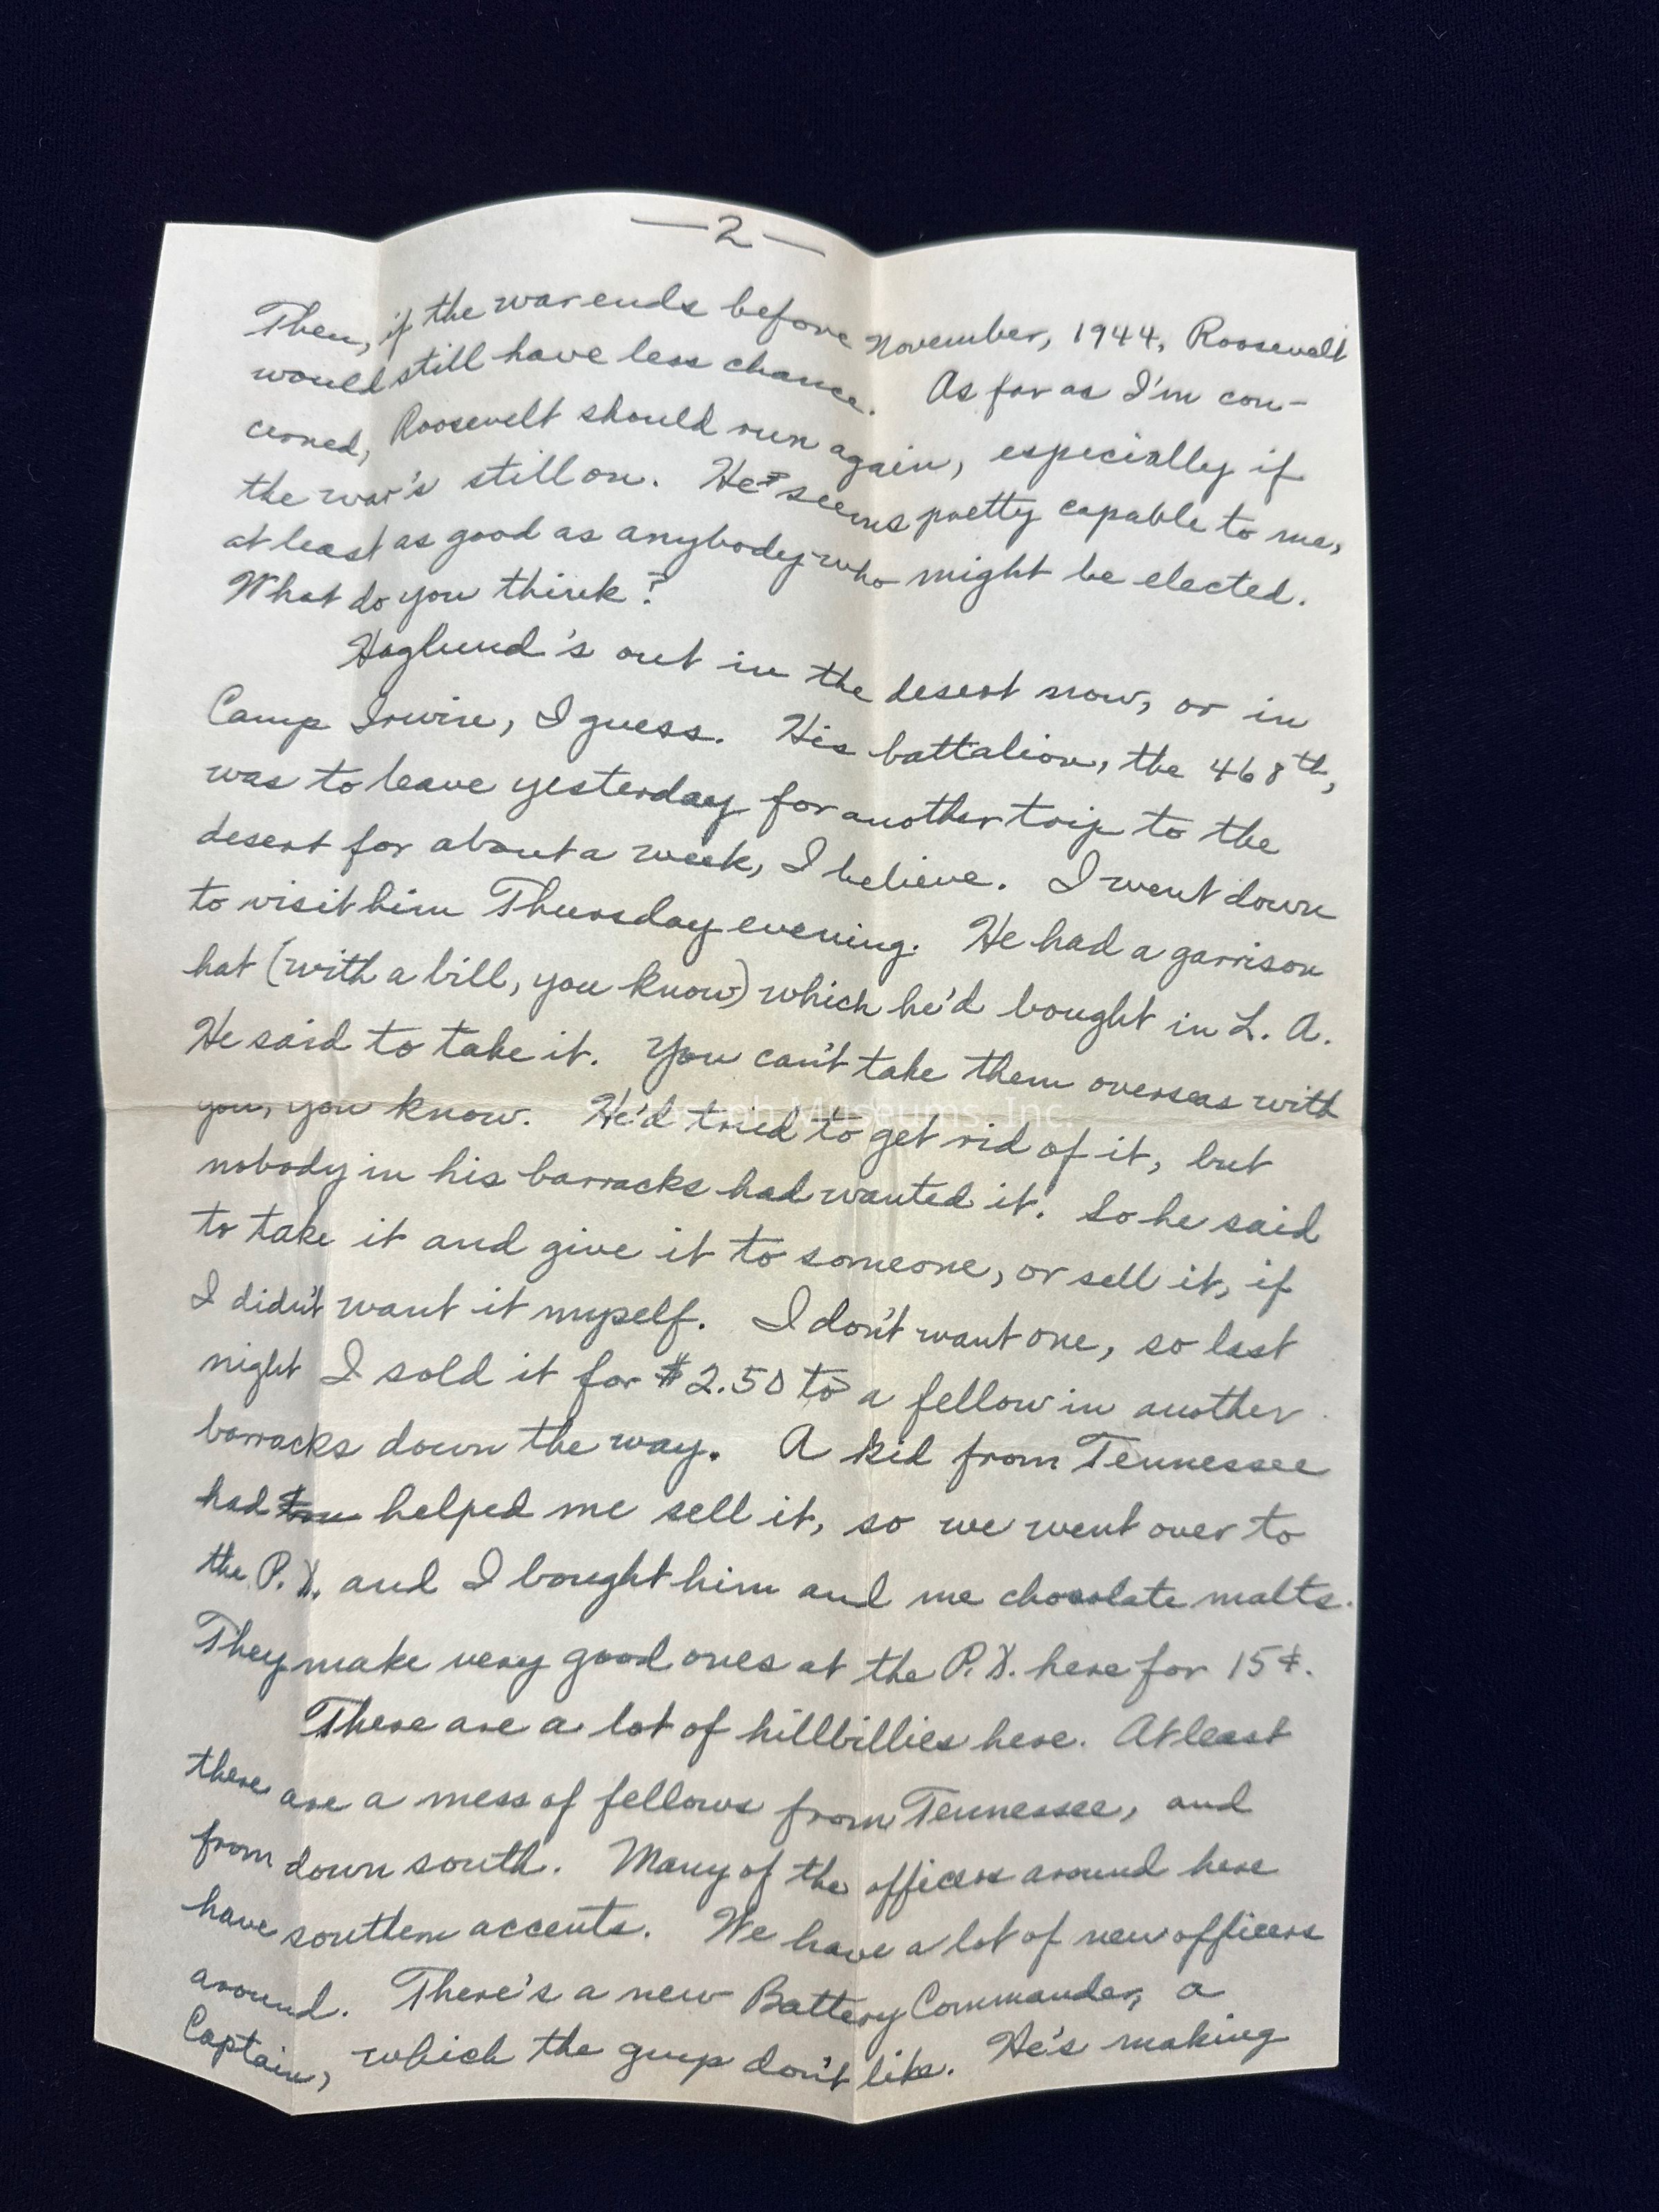 —2—
Then, if the war ends before November, 1944, Roosevelt
would still have less chance. As far as I'm con-
cerned, Roosevelt should run again, especially if
the war's still on. He seems pretty capable to me,
at least as good as anybody who might be elected.
What do you think?
Haglund's out in the desert now, or in
Camp Irwin, I guess. His battalion, the 468th,
was to leave yesterday for another trip to the
desert for about a week, I believe. I went down
to visit him Thursday evening. He had a garrison
hat (with a bill, you know) which he'd bought in L. A.
He said to take it. You can't take them overseas with
you, you know. He'd tried to get rid of it, but
nobody in his barracks had wanted it. So he said
to take it and give it to someone, or sell it, if
I didn't want it myself. I don't want one, so last
night I sold it for $2.50 to a fellow in another
barracks down the way. A kid from Tennessee
had helped me sell it, so we went over to
the P.X. and I bought him and me chocolate malts.
They make very good ones at the P.X. here for 15¢.
There are a lot of hillbillies here. At least
there are a mess of fellows from Tennessee, and
from down south. Many of the officers around here
have southern accents. We have a lot of new officers
around. There's a new Battery Commander, a
Captain, which the guys don't like. He's making
Museums, Inc.